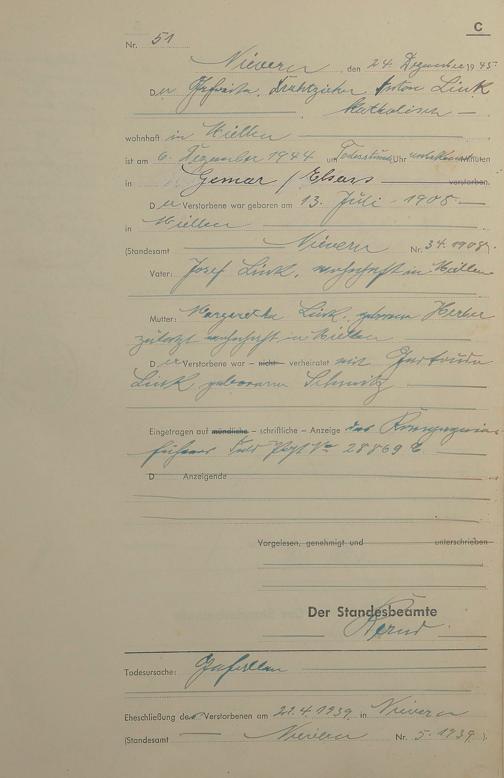 C
Nr. 51
Nievern, den 24. Dezember 1945
Der Gefreite, Drahtzieher Anton Link
katholisch
wohnhaft in Miellen
ist am 6. Dezember 1944 um Todesstunde Uhr unbekannt Minuten
in Gemar / Elsass verstorben.
Der Verstorbene war geboren am 13. Juli 1908
in Miellen
(Standesamt Nievern Nr. 34.1908).
Vater: Josef Link, wohnhaft in Miellen
Mutter: Margaretha Link, geborene Herber
zuletzt wohnhaft in Miellen
Der Verstorbene war – nicht – verheiratet mit Gertruda
Link, geborenen Schmitz
Eingetragen auf mündliche – schriftliche – Anzeige des Kompagnie-
führers Feld Post Nr 28869
D Anzeigende
Vorgelesen, genehmigt und unterschrieben
Der Standesbeamte
Todesursache: Gefallen
Eheschließung des Verstorbenen am 22.4.1939 in Nievern
(Standesamt Nievern Nr. 5.1939).